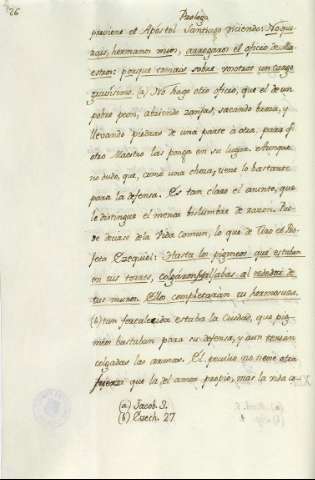 26
Prologo
previene el Apóstol Santiago diciendo: No que-
rais, hermanos mios, arregaros el oficio de Ma-
estros: porque tomais sobre vosotros un cargo
gravisimo. (a) No hago otro oficio, que el de un
pobre peon, abriendo zanjas, sacando tierra, y
llevando piedras de una parte à otra, para qe
otro Maestro las ponga en su lugar. Aunque
no dudo, que, como una choza, tiene lo bastante
para la defensa. Es tan claro el asunto, que
le distingue el menor bislumbre de razon. Pue-
de decirse de la Vida comun, lo que de Tiro el Pro-
feta Ezequiel: Hasta los pigmeos que estaban
en tus torres, colgaron sus aljabas al rededor de
tus muros. Ellos completaron tu hermosura.
(b) tan fortalecida estaba la Ciudad, que pig-
méos bastaban para su defensa, y aun tenian
colgadas las armas. El pruino no tiene otra
fuerza que la del amor propio, mas la vida co-
(a) Jacob. 3.
(b) Ezech. 27